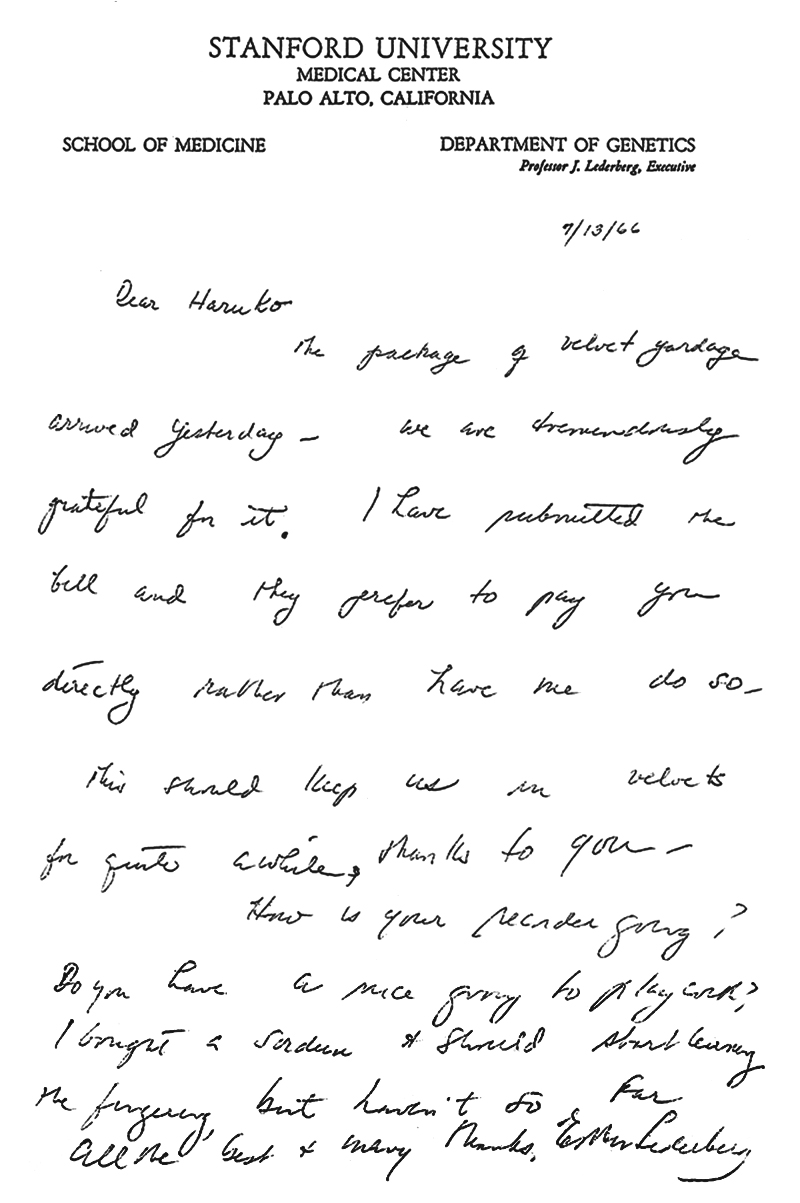 STANFORD UNIVERSITY
MEDICAL CENTER
PALO ALTO, CALIFORNIA
SCHOOL OF MEDICINE
DEPARTMENT OF GENETICS
Professor J. Lederberg, Executive
7/13/66
Dear Haruko
The package of velvet yardage
arrived yesterday – we are tremendously
grateful for it. I have submitted the
bill and they prefer to pay you
directly rather than have me do so –
This should keep us in velvets
for quite awhile, thanks to you –
How is your recorder going?
Do you have a nice group to play with?
I bought a & should start learning
the fingering, but haven't so far
All the best & many thanks, Esther Lederberg